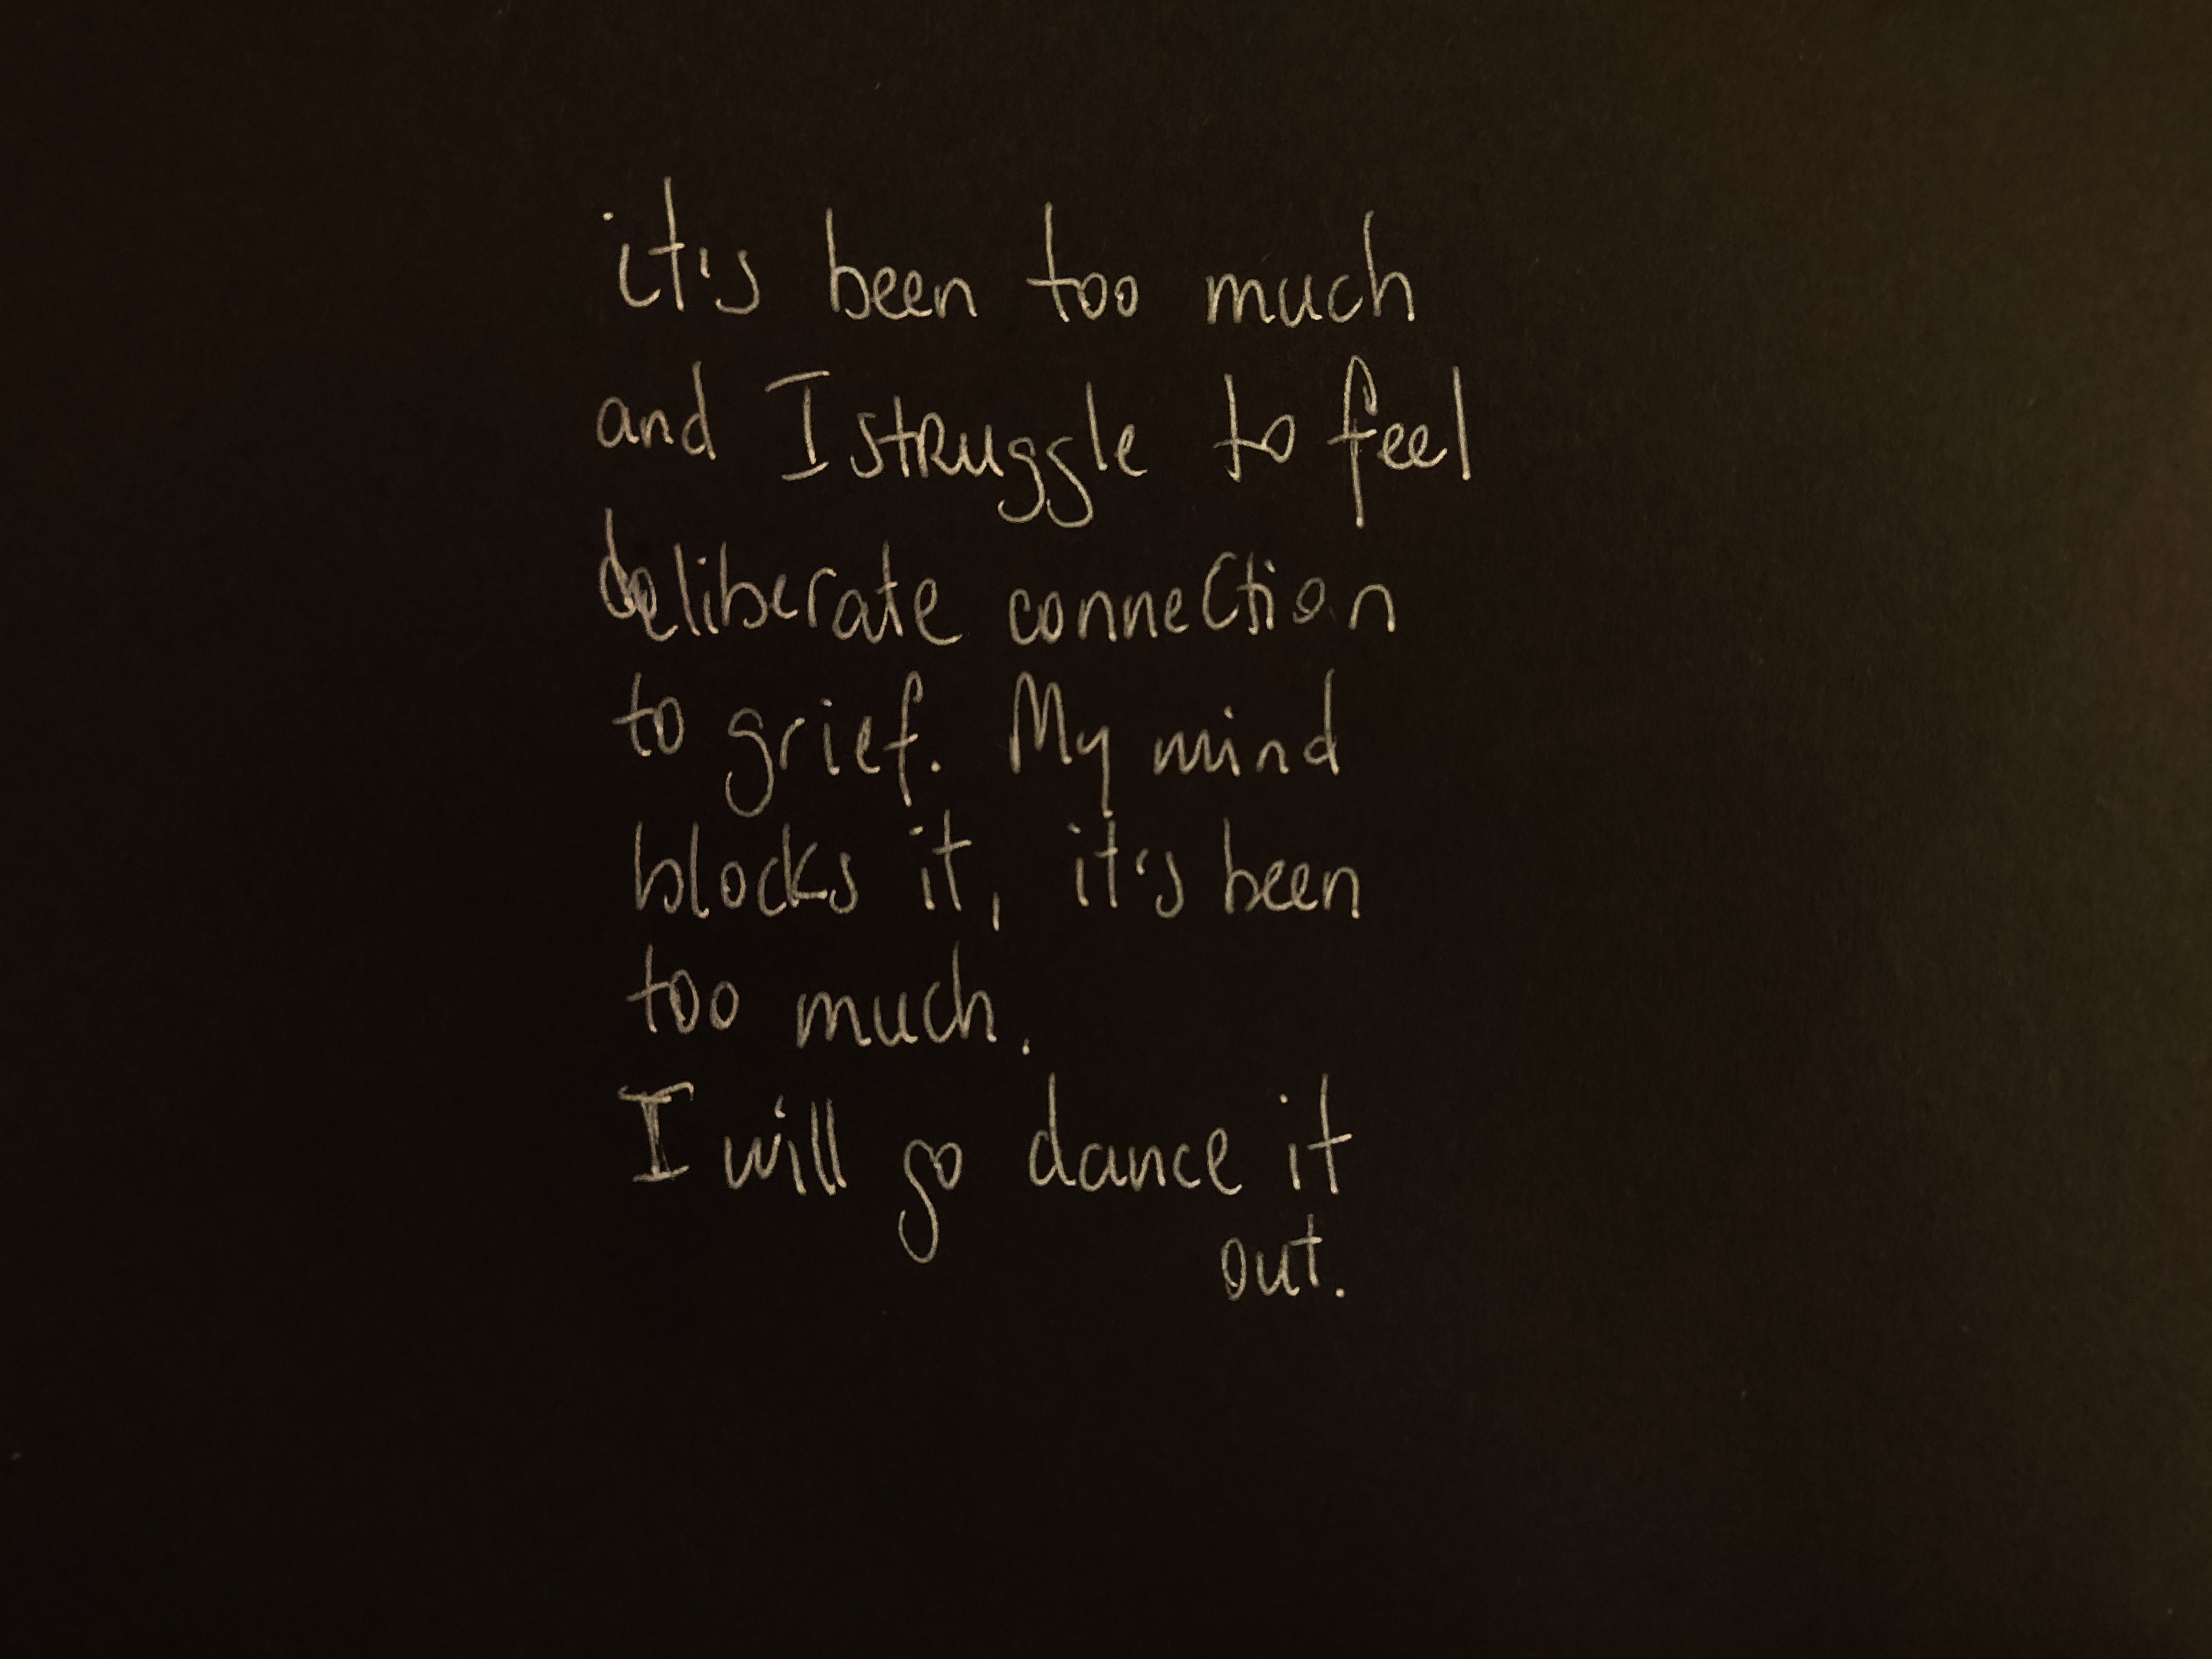 it's been too much
and I struggle to feel
deliberate connection
to grief. My mind
blocks it, it's been
too much.
I will go dance it
out.